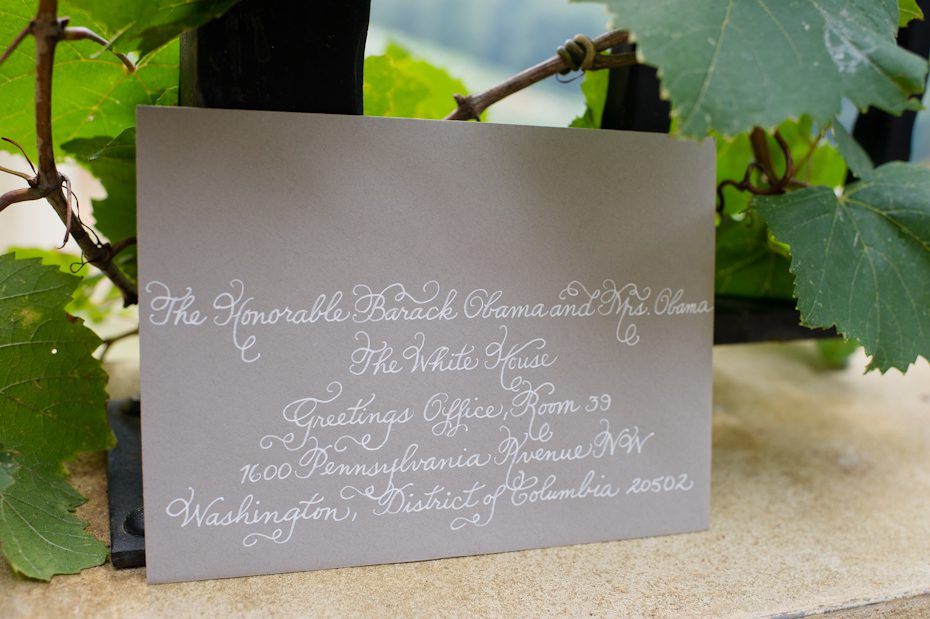 The Honorable Barack Obama and Mrs. Obama
The White House
Greetings Office, Room 39
1600 Pennsylvania Avenue NW
Washington, District of Columbia 20502